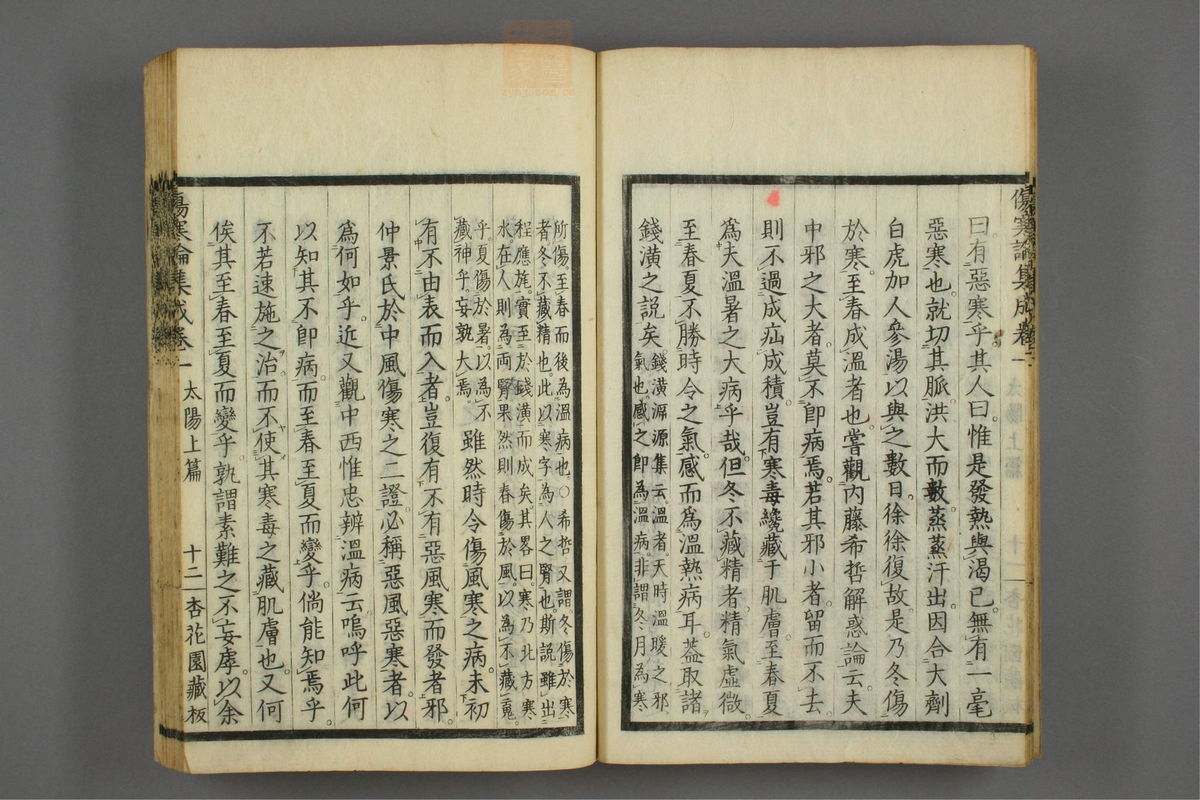 曰有惡寒乎其人曰惟是發熱與渴已無有一毫
惡寒也就切其脈洪大而數蒸蒸汗出因合大劑
白虎加人參湯以與之數日徐徐復故是乃冬傷
於寒至春成溫者也嘗觀內藤希哲解惑論云夫
中邪之大者莫不卽病焉若其邪小者留而不去
則不過成疝成積豈有寒毒纔藏于肌膚至春夏
爲夫溫暑之大病乎哉但冬不藏精者精氣虛微
至春夏不勝時令之氣感而爲溫熱病耳葢取諸
錢潢之說矣
錢潢溯源集云溫者天時溫暖之邪
氣也感之卽為溫病非謂冬月為寒
所傷至春而後為溫病也○希哲又謂冬傷於寒
者冬不藏精也此以寒字為人之腎也斯說雖出
程應旄實至於錢潢而成矣其畧曰寒乃北方寒
水在人則為両腎果然則春傷於風以為不藏䰟
乎夏傷於暑以為不
藏神乎妄孰大焉
雖然時令傷風寒之病未初
有不由表而入者豈復有不有惡風寒而發者邪
仲景氏於中風傷寒之二證必稱惡風惡寒者以
爲何如乎近又觀中西惟忠辨溫病云嗚呼此何
以知其不卽病而至春至夏而變乎倘能知焉乎
不若速施之治而不使其寒毒之藏肌膚也又何
俟其至春至夏而變乎孰謂素難之不妄虖以余
傷寒論集成卷一 太陽上篇 十二 杏花園藏板